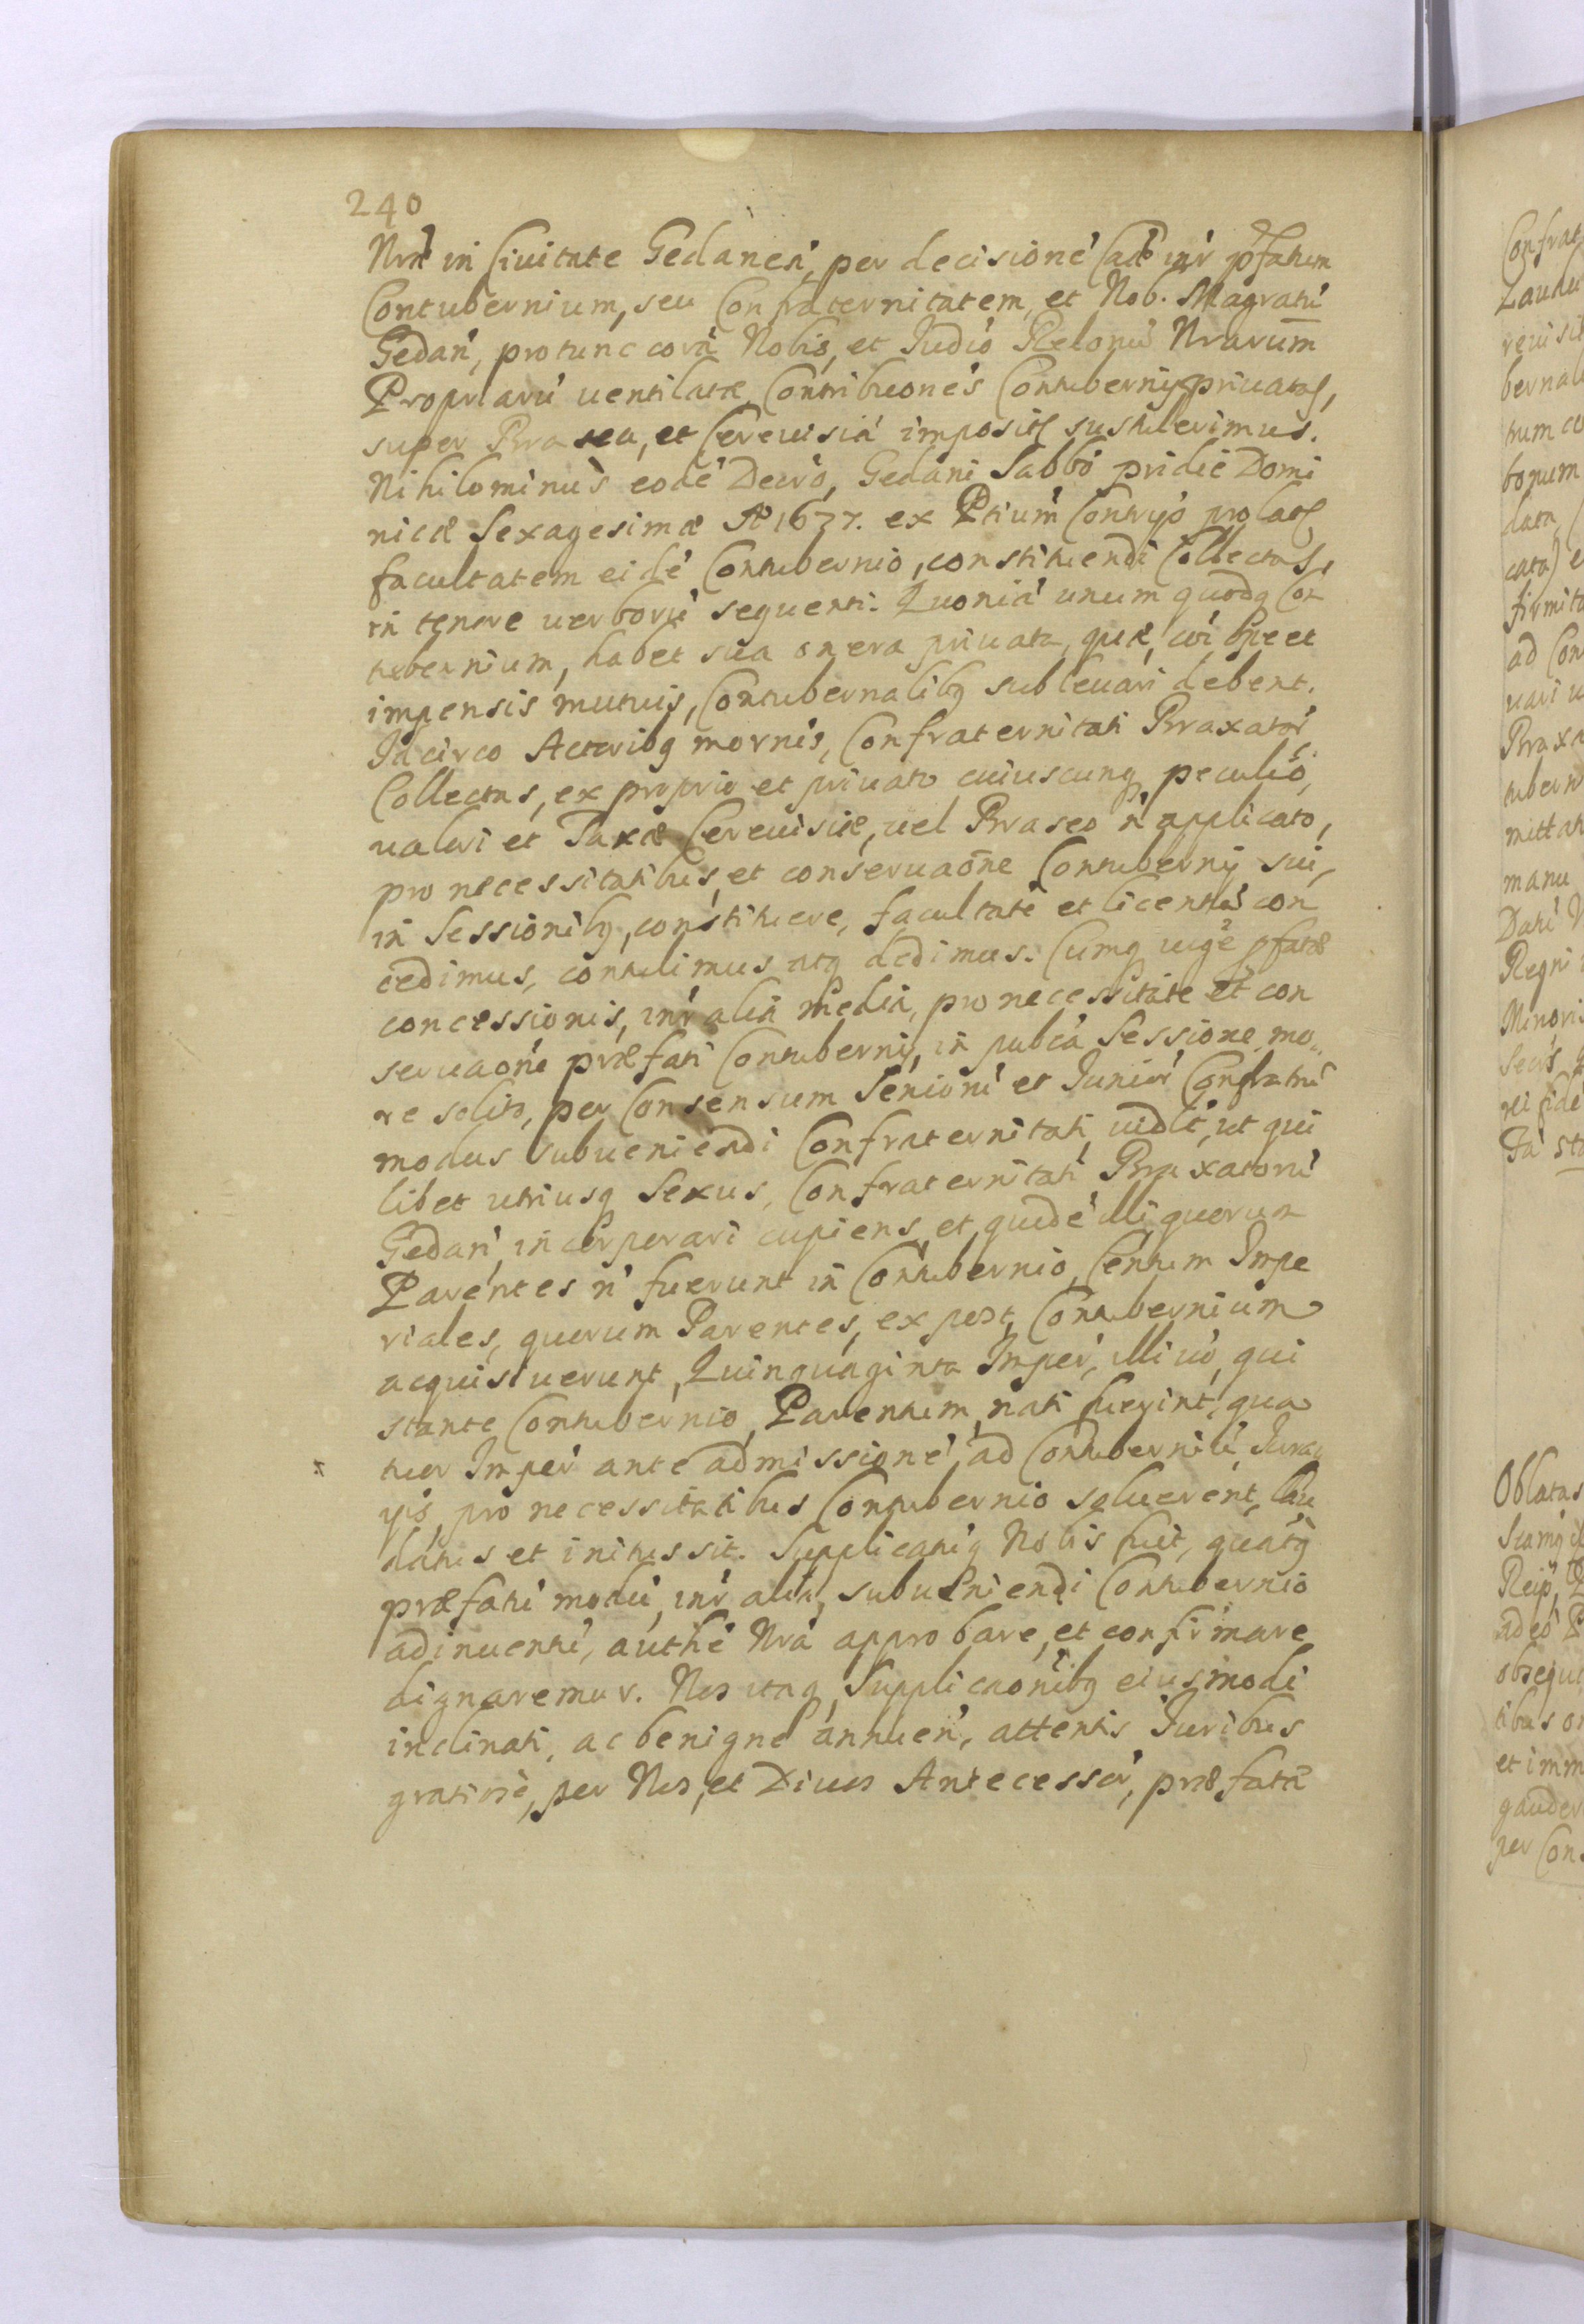 240
Nrã in Ciuitate Gedaneñ, per decisione' Cae' int'r pfatum
Contubernium, seu Confraternitatem, et Nob. Magratu'
Gedan', protunc cora' Nobis, et Judi'o Relonu' Nrarum
Propriaru' uentilatæ, Contribuone's Contubernij priuatas,
super Brasea, et Cereuisia' impositas sustulerimus.
Nihilominu's eode' Decr'o, Gedani Sabb'o pridie Domi
nicæ Sexagesimæ A° 1677. ex Ptium Contr'ijs prolatas
facultatem eide' Contubernio, constituendi Collectas,
in tenore uerboru' sequenti. Quonia' unum quodq Con
tubernium, habet sua onera priuata, quæ, ope et
impensis mutuis, Contubernalibq subleuari debent.
Idcirco Actoribq mornis, Confraternitati Braxator'
Collectas, ex proprio et priuato cuiuscunq peculio,
ualori et Taxæ Cereuisiæ, uel Braseo n' applicato,
pro necessitatibus, et conseruaone Contubernij sui,
in Sessionibq, constituere, facultate' et licentia' con
cedimus, contulimus atq dedimus. Cumq uige' pfatæ
concessionis, int'r alia media, pro necessitate et con
seruaone præfati Contubernij, in pub'ca Sessione, mo
re solito, per Consensum Senioru' et Junior' Confratru'
modus subueniendi Confraternitati, uid'lt, ut qui
libet utriusq Sexus, Confraternitati Braxatoru'
Gedan', incorporari cupiens, et quide' illi quorum
Parentes n' fuerunt in Contubernio, Centum Impe
riales, quorum Parentes, ex post, Contubernium
acquisiuerunt, Quinquaginta Imper', illi uo', qui
stante Contubernio, Parentum, nati fuerint, qua
tuor Imper' ante admissione', ad Contubernilu'
pro necessitatibus Contubernio soluerent, lau
datus et initus sit. Supplicatuq Nobis fuit, quatq
præfatu' modu', int'r alia, subueniendi Contubernio
adinuentu', auth'e Nra' approbare, et confirmare
dignaremur. Nos itaq, Supplicaonibq eiusmodi
inclinati, ac benigne annuen', attentis Juribus
gratiose, per Nos, et Diuos Antecessor', præfata'